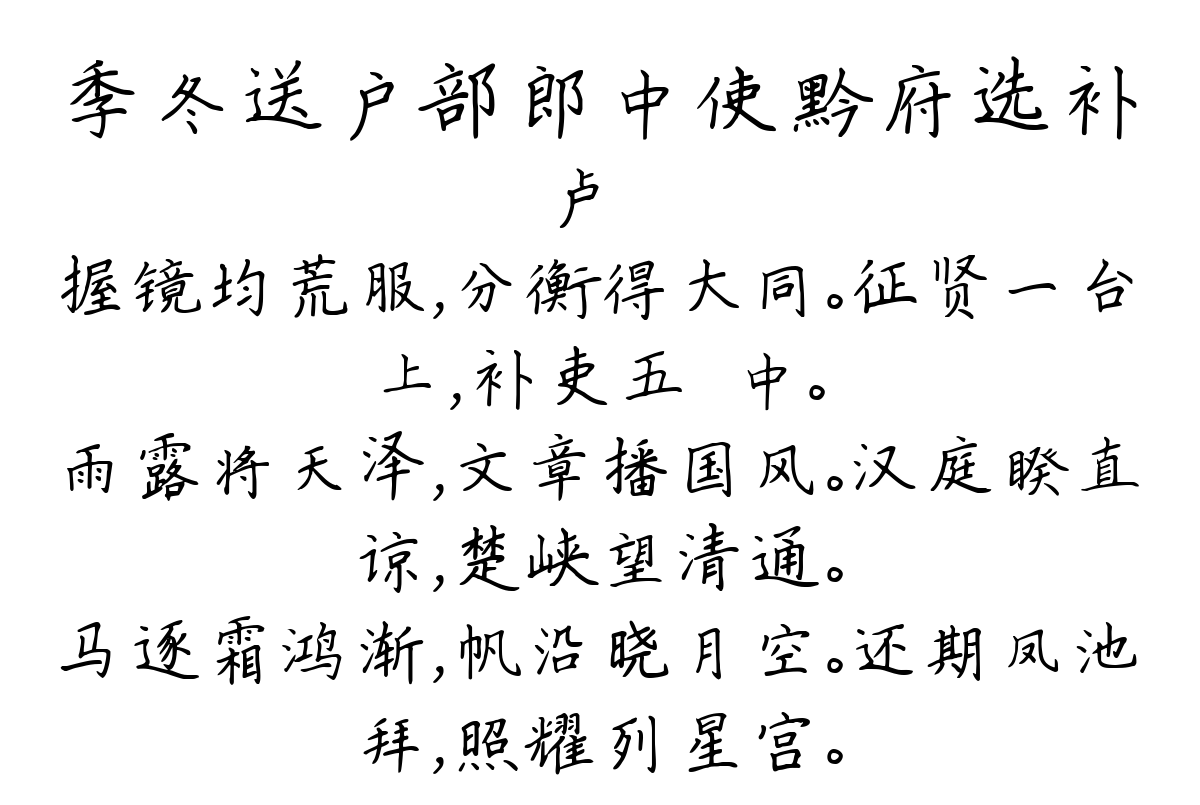 季冬送户部郎中使黔府选补
卢
握镜均荒服,分衡得大同。征贤一台
上,补吏五 中。
雨露将天泽,文章播国风。汉庭睽直
谅,楚峡望清通。
马逐霜鸿渐,帆沿晓月空。还期凤池
拜,照耀列星宫。